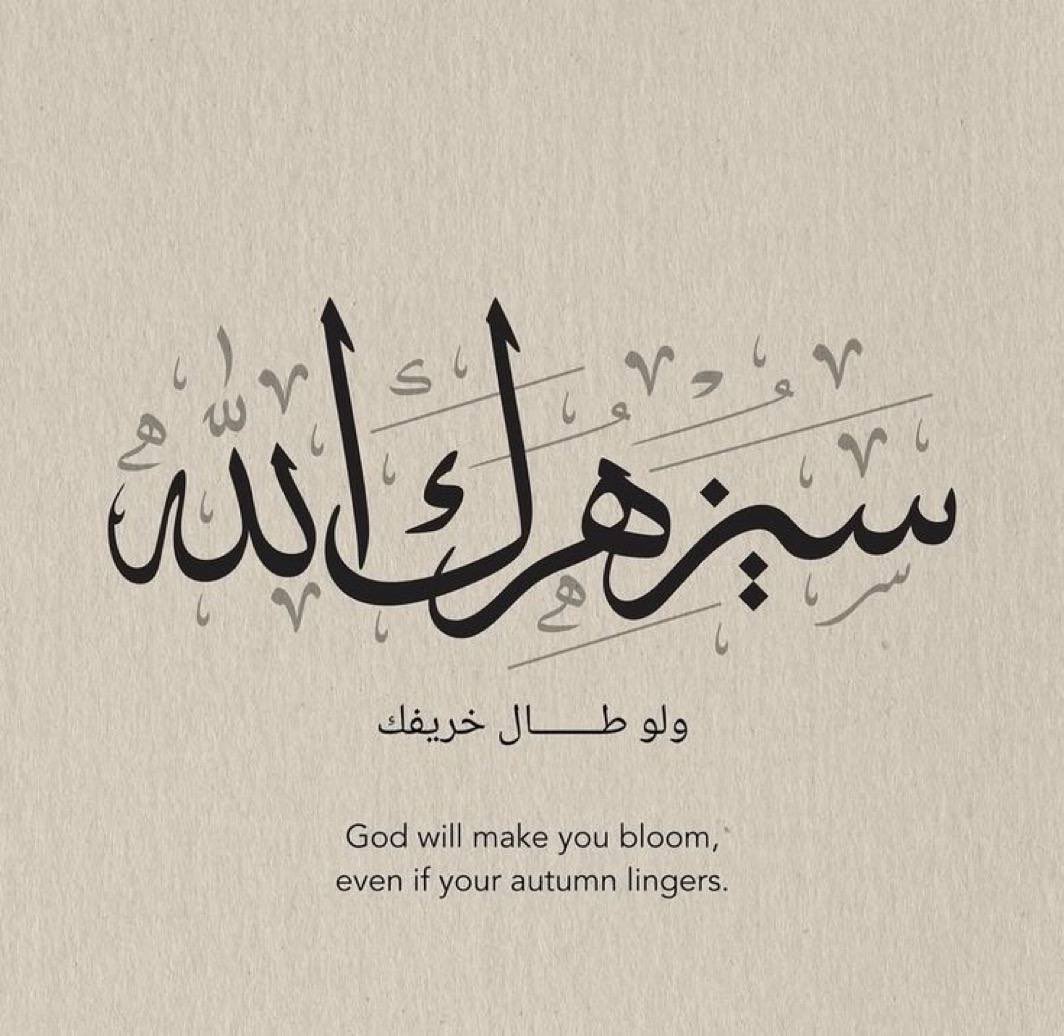 سيزهرك الله
ولو طـــــال خريفك
God will make you bloom,
even if your autumn lingers.